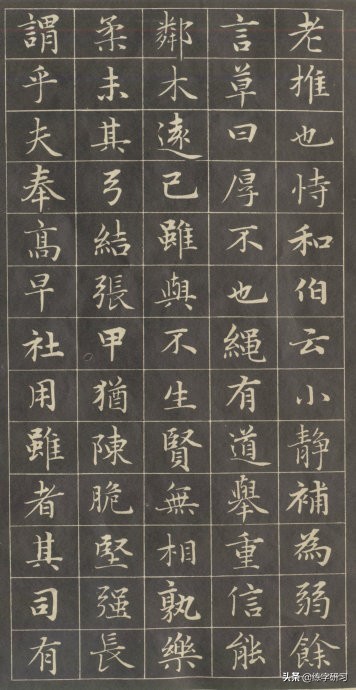 老推也恃和伯云小靜補為弱餘
言草曰厚不也繩有道舉重信能
鄰木遠已雖與不生賢無相孰樂
柔未其弓結張甲猶陳脆堅强長
謂乎夫奉高早社用雖者其司有
头条 @练字研习